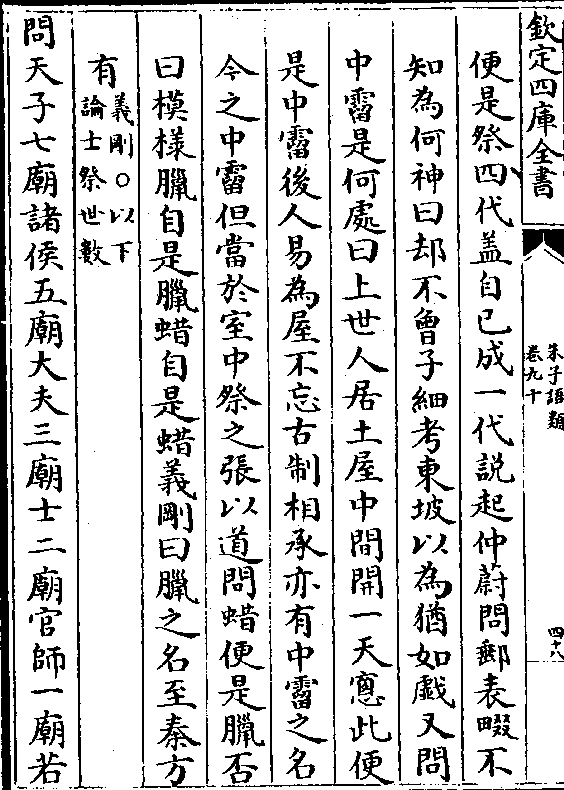 欽定四庫全書
朱子語類
卷九十
四十八
便是祭四代盖自已成一代説起仲蔚問郵表畷不
知為何神曰却不曾子細考東坡以為猶如戲又問
中霤是何處曰上世人居土屋中間開一天窻此便
是中霤後人易為屋不忘古制相承亦有中霤之名
今之中霤但當於室中祭之張以道問蜡便是臘否
曰模樣臘自是臘蜡自是蜡義剛曰臘之名至秦方
有義剛○以下
論士祭世數
問天子七廟諸侯五廟大夫三廟士二廟官師一廟若